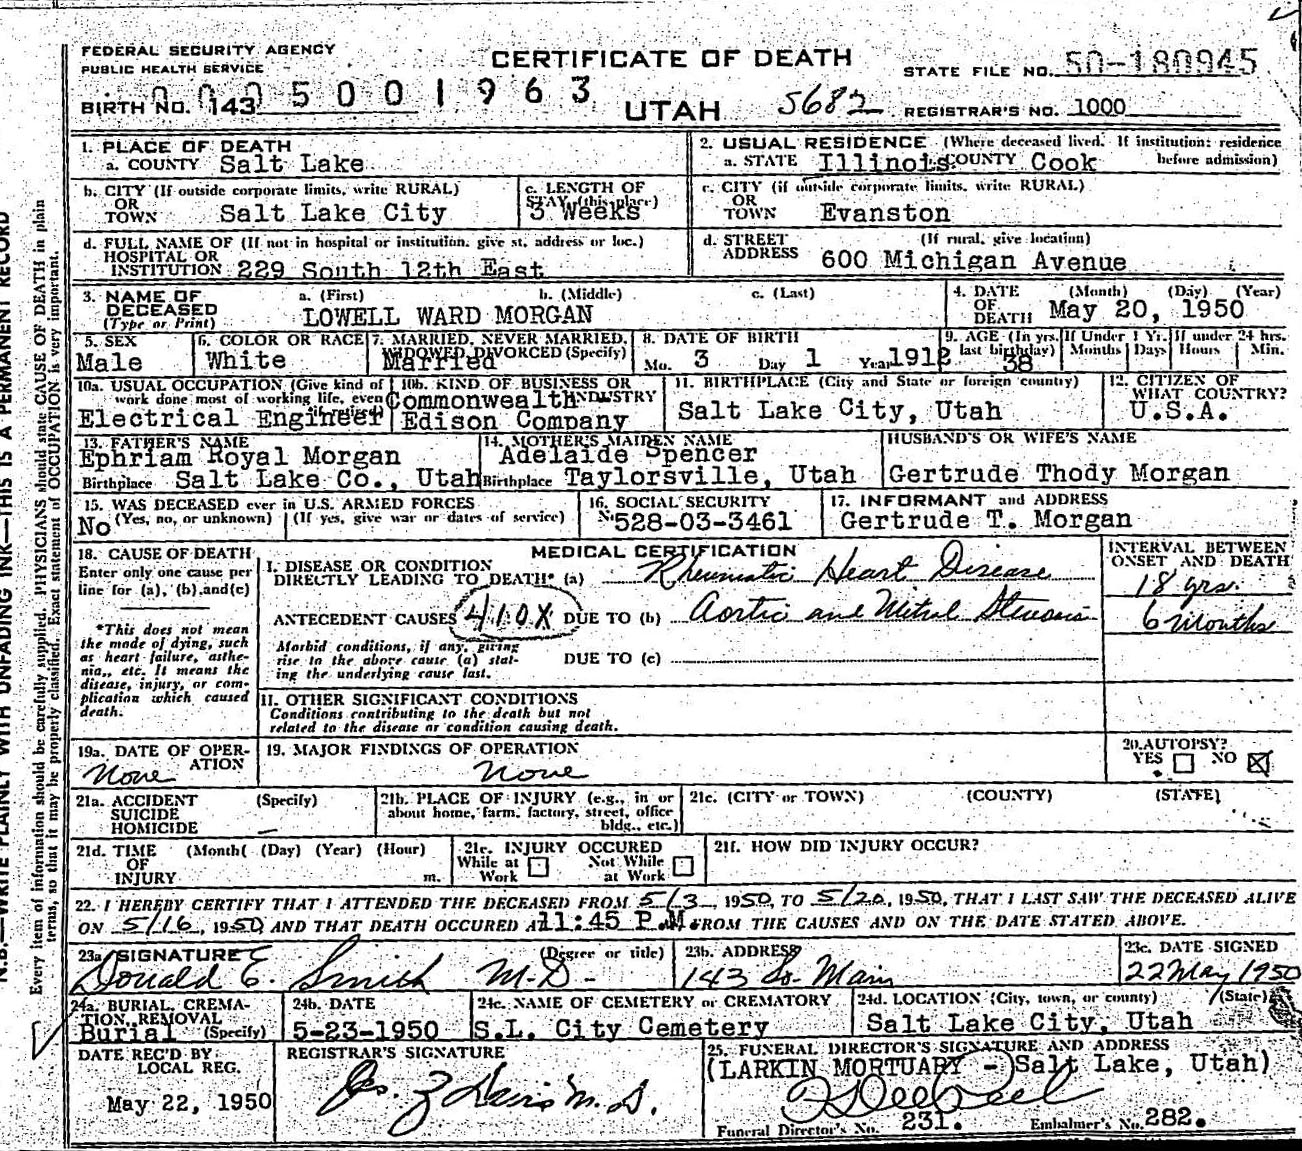 FEDERAL SECURITY AGENCY
PUBLIC HEALTH SERVICE
CERTIFICATE OF DEATH
STATE FILE NO. 50-180945
BIRTH NO. 143
0005001963
UTAH
5682
REGISTRAR'S NO. 1000
1. PLACE OF DEATH
a. COUNTY Salt Lake
2. USUAL RESIDENCE (Where deceased lived. If institution: residence before admission)
a. STATE Illinois COUNTY Cook
b. CITY (If outside corporate limits, write RURAL)
OR TOWN Salt Lake City
c. LENGTH OF STAY (this place)
3 Weeks
c. CITY (if outside corporate limits, write RURAL)
OR TOWN Evanston
d. FULL NAME OF (If not in hospital or institution, give st. address or loc.)
HOSPITAL OR INSTITUTION 229 South 12th East
d. STREET ADDRESS (If rural, give location)
600 Michigan Avenue
3. NAME OF DECEASED (Type or Print)
a. (First) b. (Middle) c. (Last)
LOWELL WARD MORGAN
4. DATE OF DEATH (Month) (Day) (Year)
May 20, 1950
5. SEX
Male
6. COLOR OR RACE
White
7. MARRIED, NEVER MARRIED, WIDOWED, DIVORCED (Specify)
Married
8. DATE OF BIRTH
Mo. 3 Day 1 Year 1912
9. AGE (In yrs. last birthday)
38
If Under 1 Yr. Months Days
If under 24 hrs. Hours Min.
10a. USUAL OCCUPATION (Give kind of work done most of working life, even if retired)
Electrical Engineer
10b. KIND OF BUSINESS OR INDUSTRY
Commonwealth
Edison Company
11. BIRTHPLACE (City and State or foreign country)
Salt Lake City, Utah
12. CITIZEN OF WHAT COUNTRY?
U.S.A.
13. FATHER'S NAME
Ephriam Royal Morgan
Birthplace Salt Lake Co., Utah
14. MOTHER'S MAIDEN NAME
Adelaide Spencer
Birthplace Taylorsville, Utah
HUSBAND'S OR WIFE'S NAME
Gertrude Thody Morgan
15. WAS DECEASED ever in U.S. ARMED FORCES
No (Yes, no, or unknown) (If yes, give war or dates of service)
16. SOCIAL SECURITY
528-03-3461
17. INFORMANT and ADDRESS
Gertrude T. Morgan
18. CAUSE OF DEATH
Enter only one cause per line for (a), (b), and (c)
*This does not mean the mode of dying, such as heart failure, asthenia, etc. It means the disease, injury, or complication which caused death.
MEDICAL CERTIFICATION
I. DISEASE OR CONDITION
DIRECTLY LEADING TO DEATH* (a) Rheumatic Heart Disease
INTERVAL BETWEEN ONSET AND DEATH
18 yrs.
ANTECEDENT CAUSES 410X DUE TO (b) Aortic and Mitral Stenosis
6 months
Morbid conditions, if any, giving rise to the above cause (a) stating the underlying cause last.
DUE TO (c)
II. OTHER SIGNIFICANT CONDITIONS
Conditions contributing to the death but not
related to the disease or condition causing death.
19a. DATE OF OPERATION
None
19. MAJOR FINDINGS OF OPERATION
None
20. AUTOPSY?
YES NO
21a. ACCIDENT SUICIDE HOMICIDE (Specify)
21b. PLACE OF INJURY (e.g., in or about home, farm, factory, street, office bldg., etc.)
21c. (CITY or TOWN) (COUNTY) (STATE)
21d. TIME OF INJURY (Month( (Day) (Year) (Hour) m.
21e. INJURY OCCURED
While at Work Not While at Work
21f. HOW DID INJURY OCCUR?
22. I HEREBY CERTIFY THAT I ATTENDED THE DECEASED FROM 5/3, 1950, TO 5/20, 1950, THAT I LAST SAW THE DECEASED ALIVE
ON 5/16, 1950, AND THAT DEATH OCCURED AT 11:45 P.M. FROM THE CAUSES AND ON THE DATE STATED ABOVE.
23a. SIGNATURE (Degree or title)
Donald E. Smith M.D.
23b. ADDRESS
143 So. Main
23c. DATE SIGNED
22 May 1950
24a. BURIAL, CREMATION, REMOVAL (Specify)
Burial
24b. DATE
5-23-1950
24c. NAME OF CEMETERY or CREMATORY
S.L. City Cemetery
24d. LOCATION (City, town, or county) (State)
Salt Lake City, Utah
DATE REC'D BY LOCAL REG.
May 22, 1950
REGISTRAR'S SIGNATURE
25. FUNERAL DIRECTOR'S SIGNATURE AND ADDRESS
(LARKIN MORTUARY - Salt Lake, Utah)
Funeral Director's No. 231. Embalmer's No. 282.
N.B.—WRITE PLAINLY WITH UNFADING INK—THIS IS A PERMANENT RECORD
Every item of information should be carefully supplied. PHYSICIANS should state CAUSE OF DEATH in plain
terms, so that it may be properly classified. Exact statement of OCCUPATION is very important.